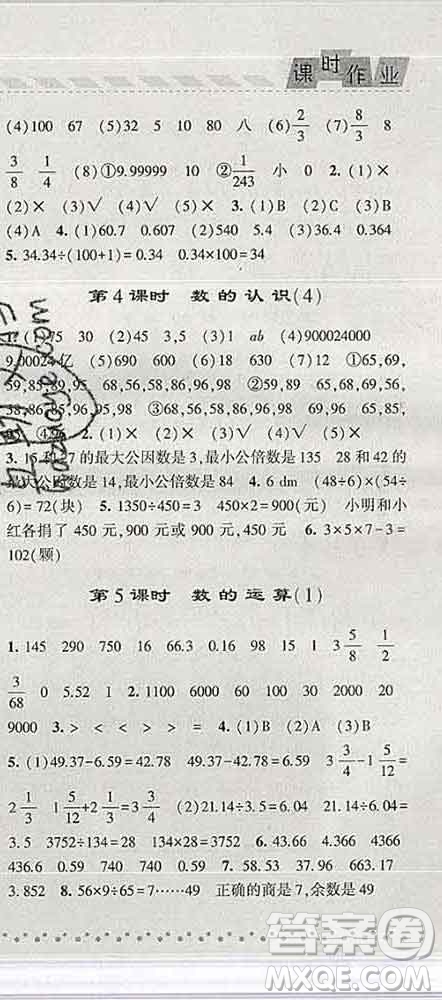 课时作业
(4)100 67 (5)32 5 10 80 八 (6)2/3 (7)8/3 8
3/8 1/4 (8)①9.99999 10 ②1/243 小 0 2.(1)×
(2)× (3)√ (4)√ (5)× 3.(1)B (2)C (3)B
(4)A 4.(1)60.7 0.607 (2)540 5.4 (3)36.4 0.364
5. 34.34÷(100+1)=0.34 0.34×100=34
第4课时 数的认识(4)
75 30 (2)45 3,5 (3)1 ab (4)900024000
9.00024亿 (5)690 600 (6)18 630 (7)12 ①65,69,
59,85,89,95 68,56,58,86,96,98 ②59,89 65,68,69,56,
58,86,85,96,95,98 ③68,56,58,86,96,98 ④60,65,
⑤96 2.(1)× (2)× (3)√ (4)×
3. 15和27的最大公因数是3,最小公倍数是135 28和42的
最大公因数是14,最小公倍数是84 4. 6 dm (48÷6)×(54÷
6)=72(块) 5. 1350÷450=3 450×2=900(元) 小明和小
红各捐了450元,900元或900元,450元 6. 3×5×7-3=
102(颗)
第5课时 数的运算(1)
1. 145 290 750 16 66.3 0.16 98 15 1 3 5/8 1/2
3/68 0 5.52 1 2. 1100 6000 60 100 30 2000 20
9000 3. > < < > > = 4.(1)B (2)A (3)B
5.(1)49.37-6.59=42.78 49.37-42.78=6.59 3 3/4-1 5/12=
2 1/3 1 5/12+2 1/3=3 3/4 (2)21.14÷3.5=6.04 21.14÷6.04=
3.5 3752÷134=28 134×28=3752 6. 43.66 4.366 4366
436.6 0.59 0.74 0.059 7. 58.53 37.96 660 663.17
3.852 8. 56×9÷65=7……49 正确的商是7,余数是49
答案圈